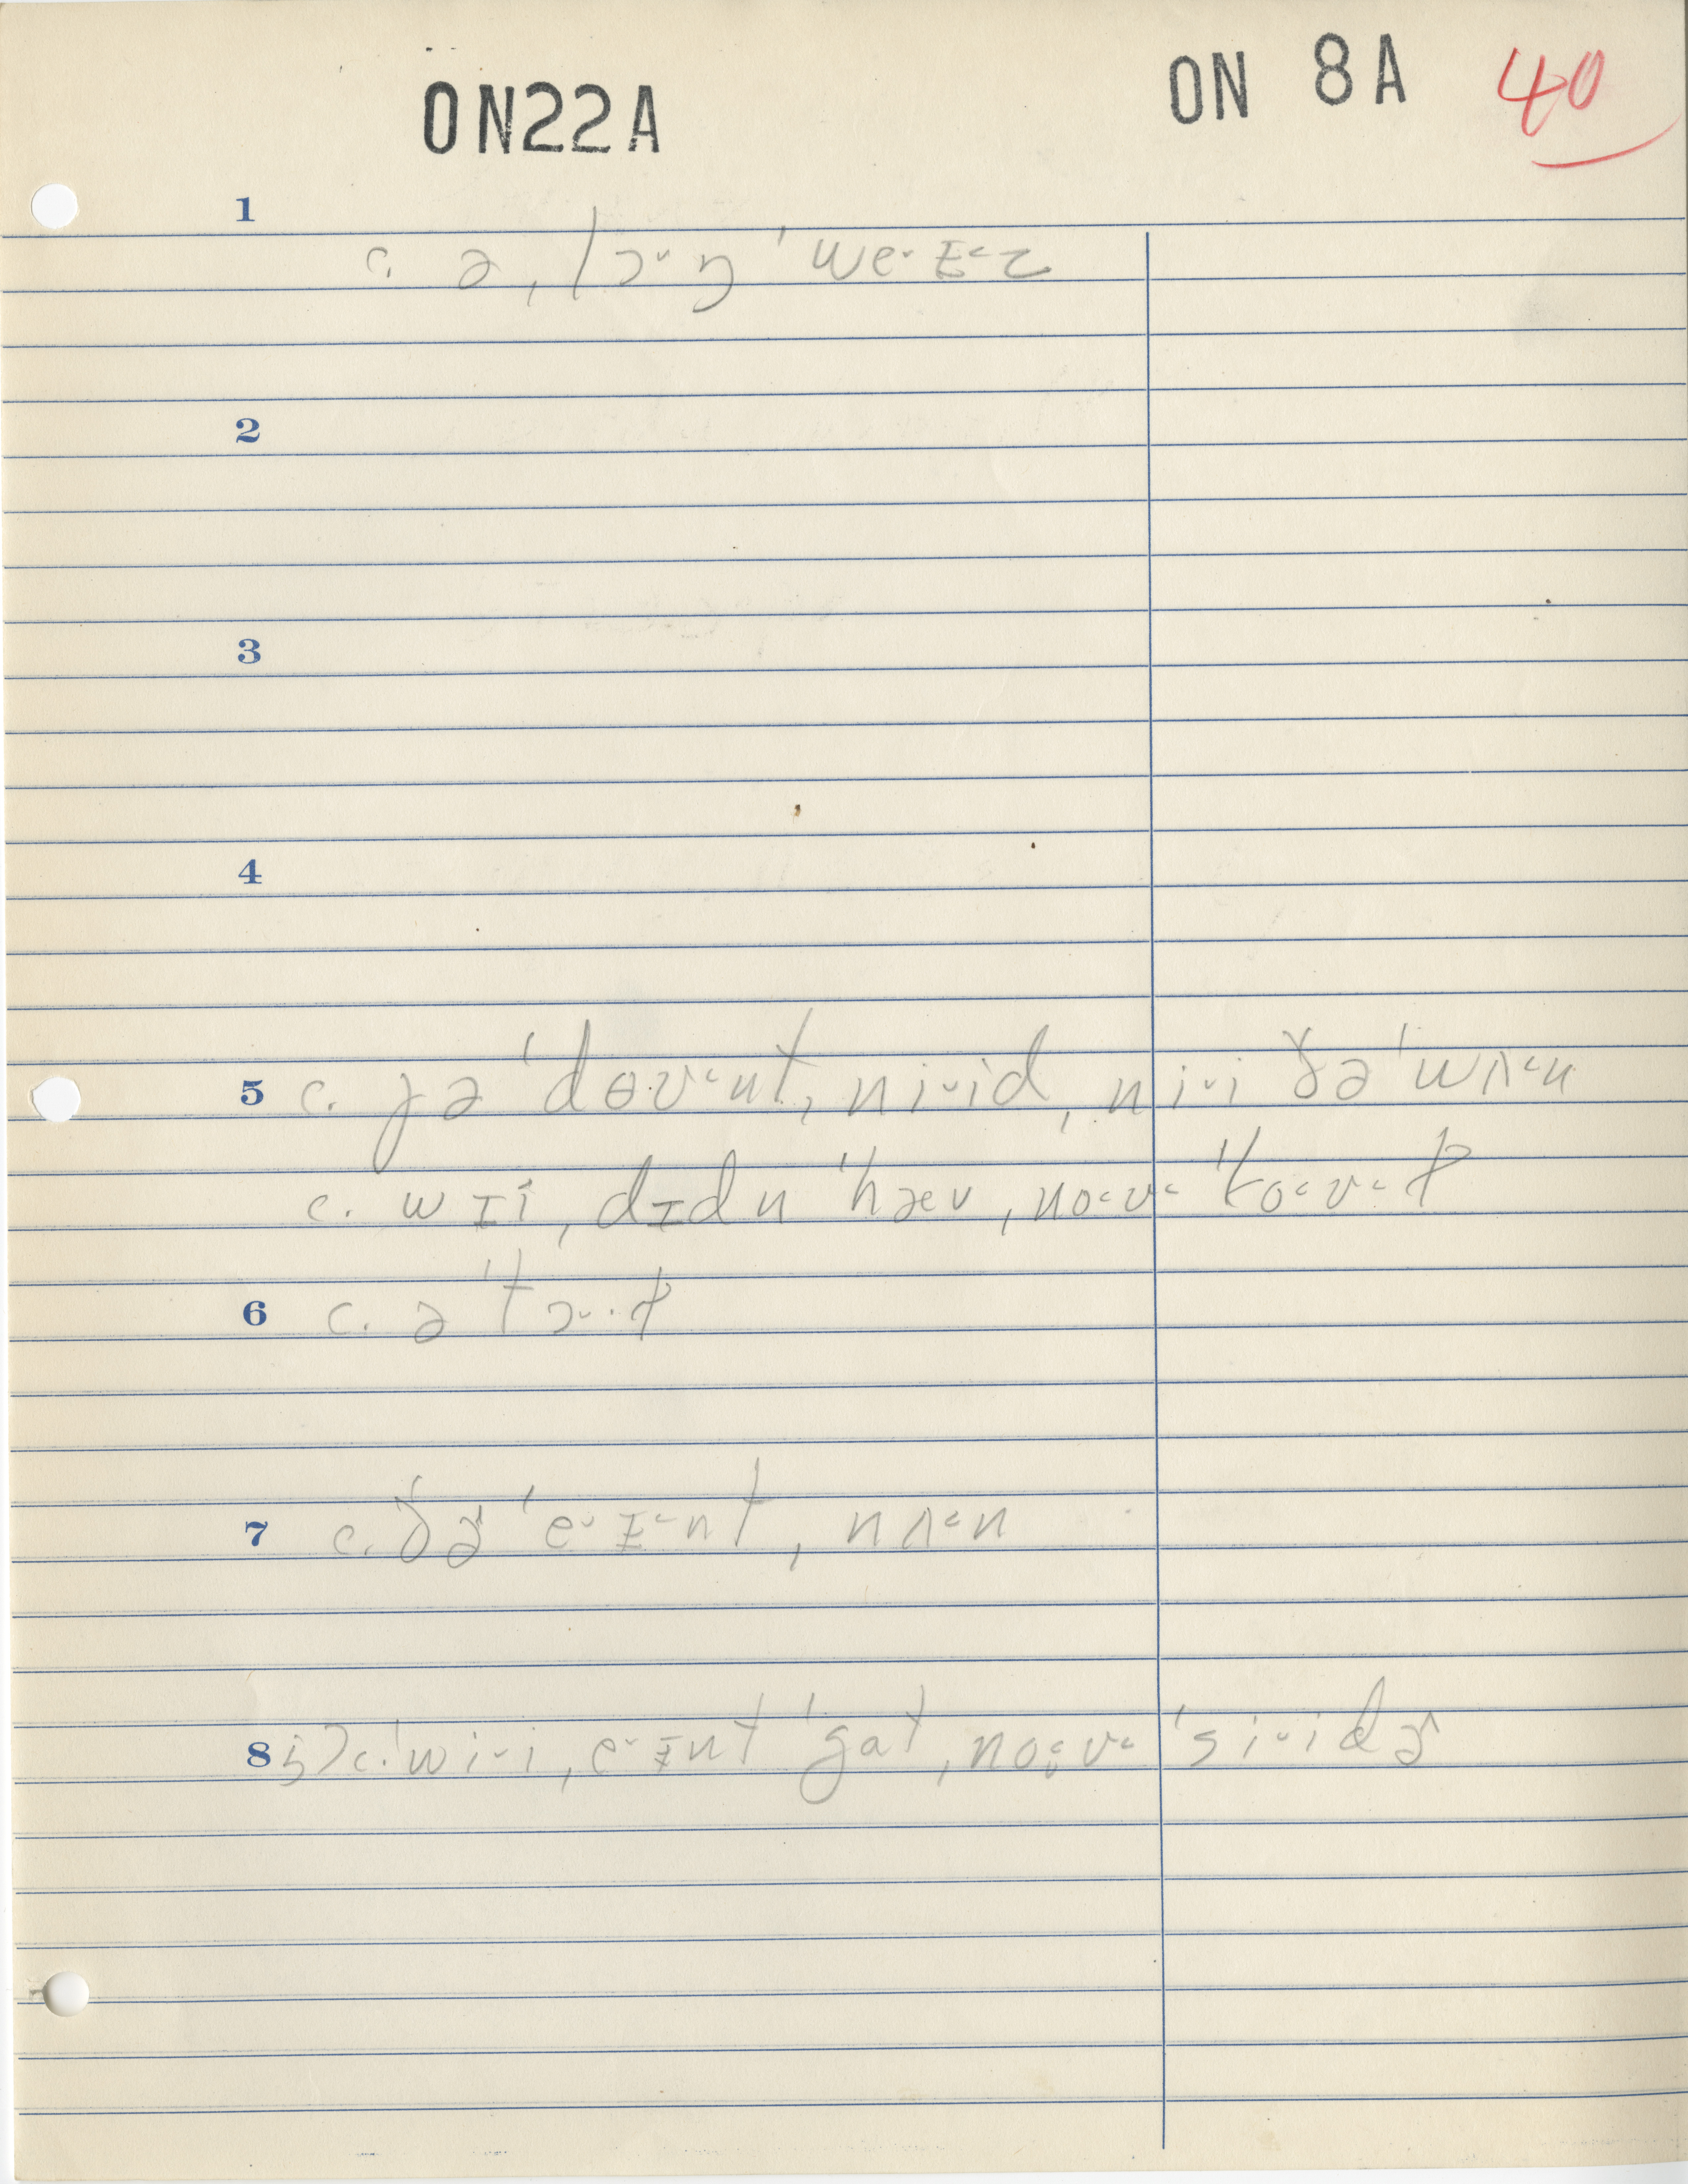 ON22A ON 8A 40
1
c. ə ˌlɔ˅ŋ ˈwe˅ɪ˂z
2
3
4
5 c. jə ˈdɵʊ˂nt ˌni˅id ˌni˅i ðə ˈwʌ˂n
c. wɪi ˌdɪdn ˈhæv ˌno˂ʊ˂ ˈko˂ʊ˂t
6 c. ə ˈtɔ˅·t
7 c. ðɚ ˈe˅ɪ˂nt ˌnʌ˂n
8 5) c. ˈwi˅i ˌe˅ɪnt ˈgat ˌno˂ʊ˂ ˈsi˅idɚ